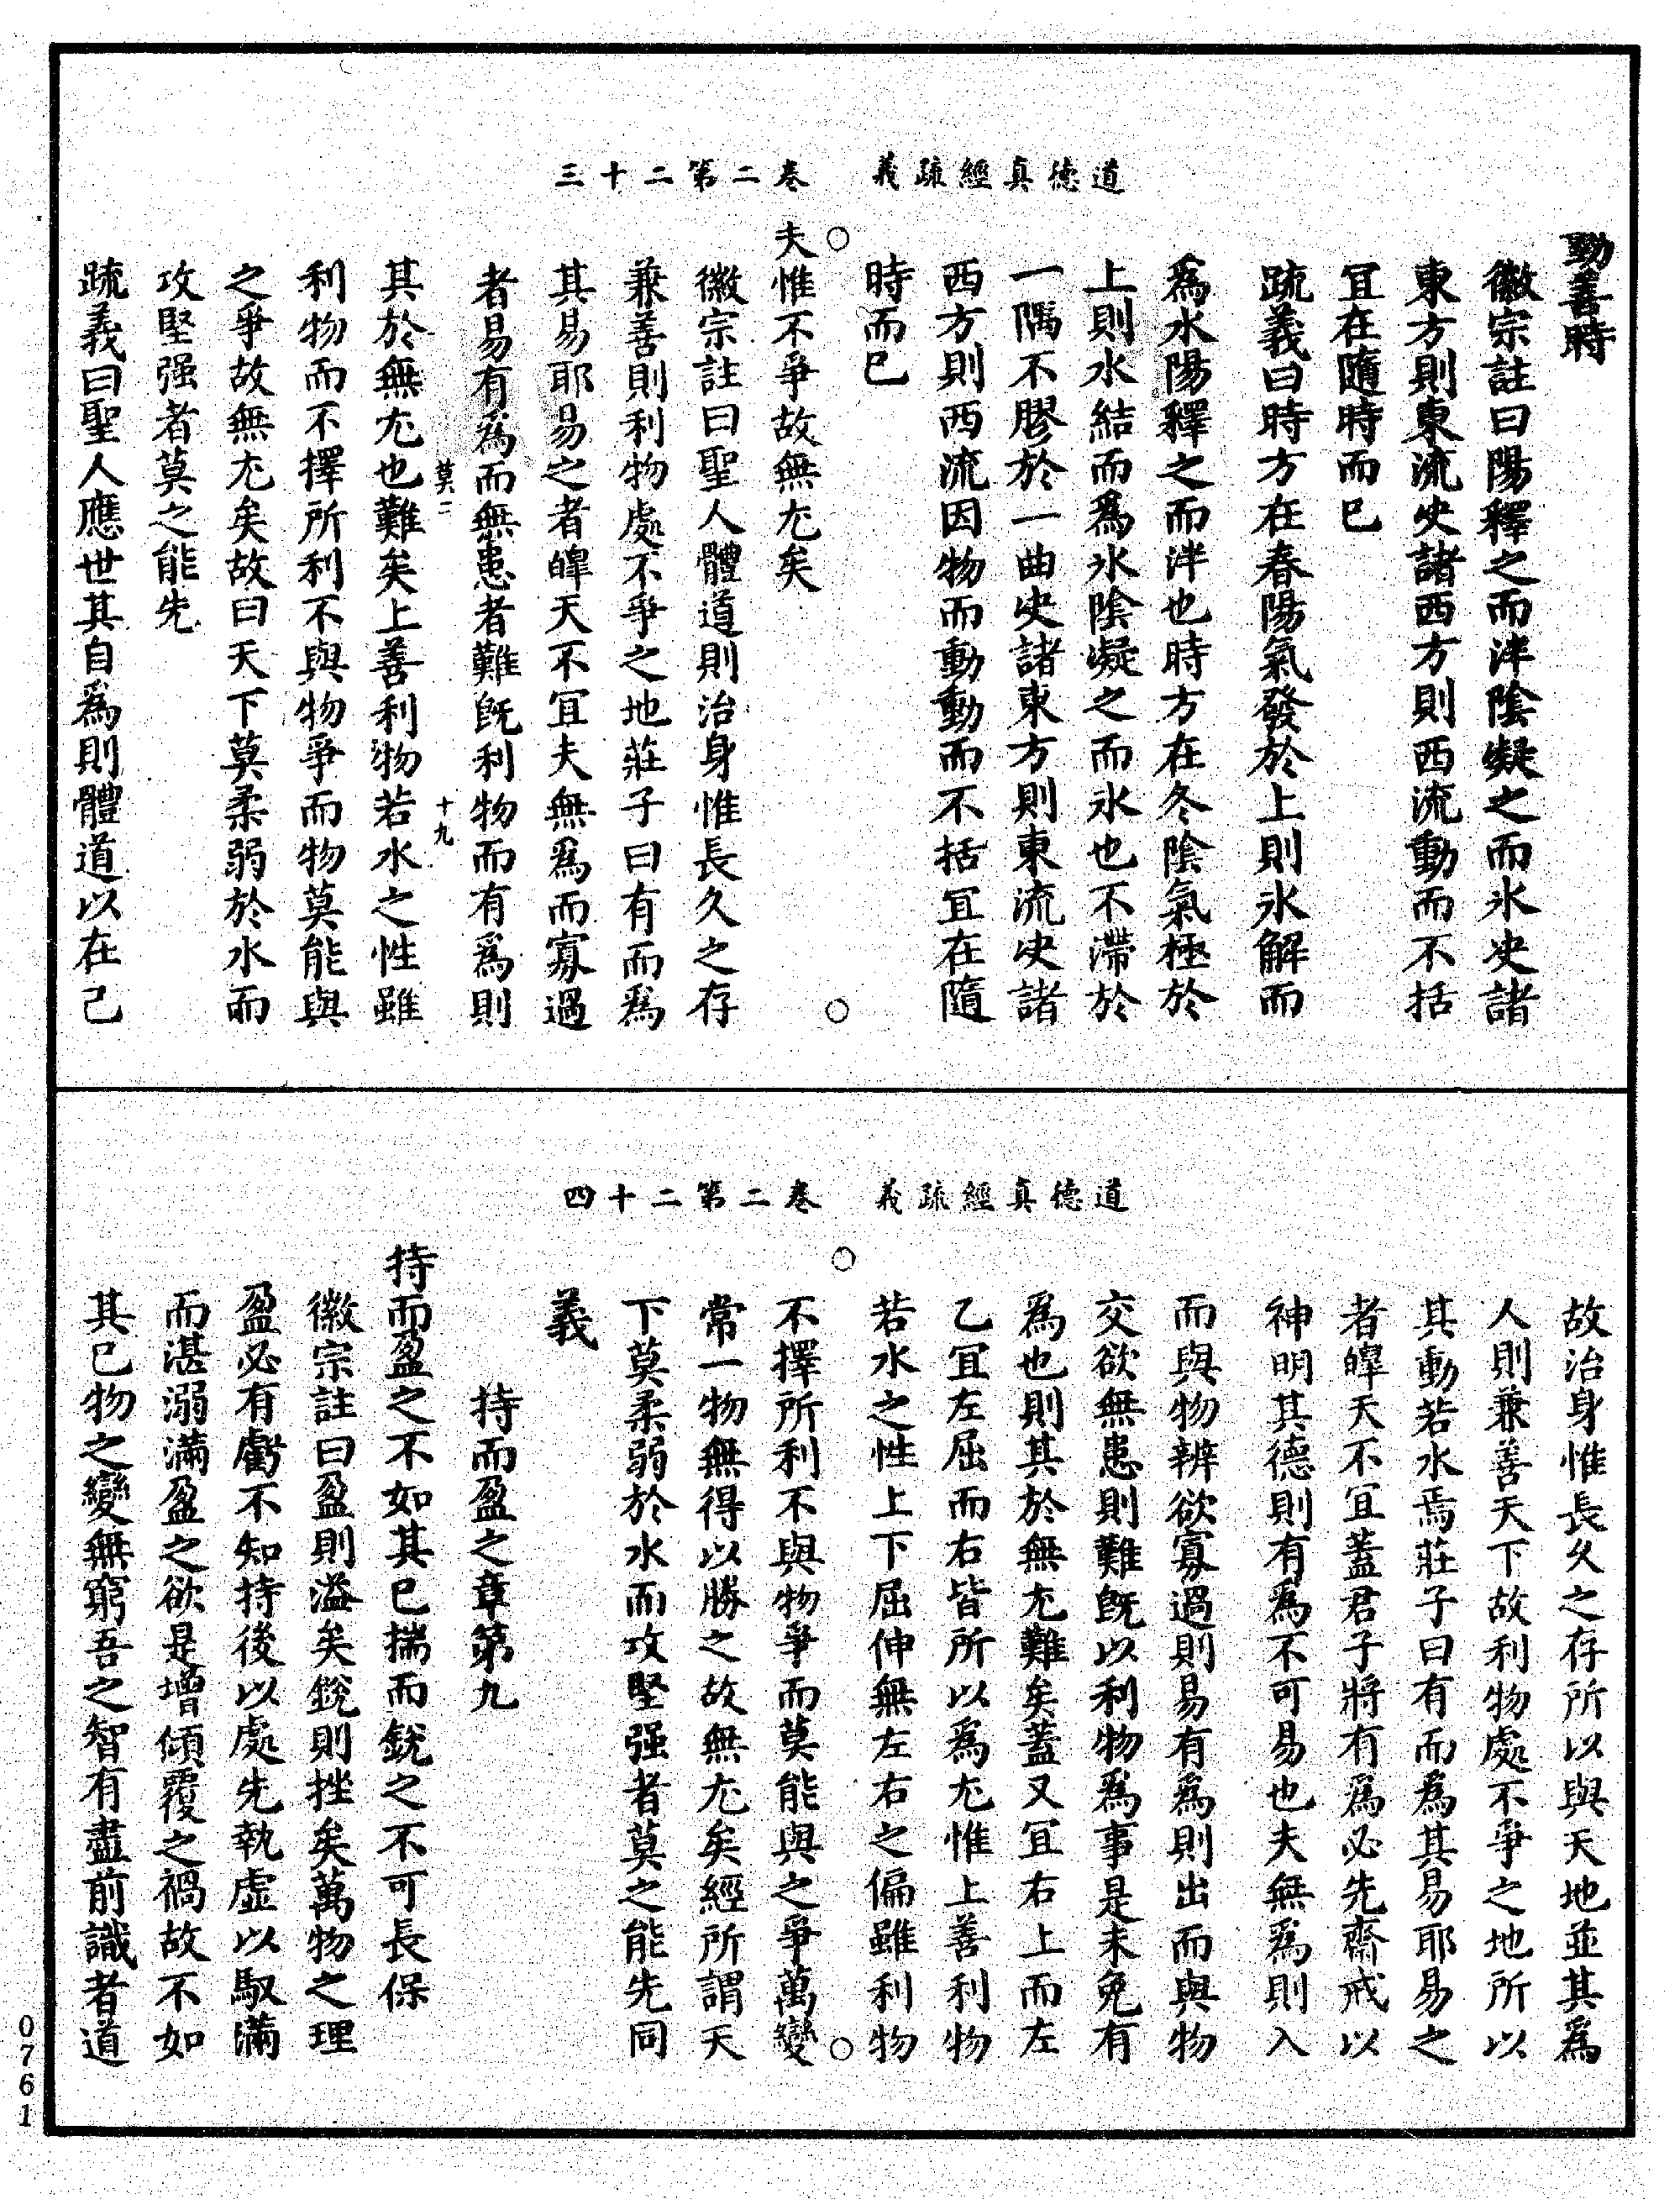 道德真經疏義　卷二第二十三
動善時
徽宗註曰陽釋之而泮陰凝之而氷決諸
東方則東流決諸西方則西流動而不括
冝在隨時而已
疏義曰時方在春陽氣發於上則氷解而
爲水陽釋之而泮也時方在冬陰氣極於
上則水結而爲氷陰凝之而氷也不滯於
一隅不膠於一曲決諸東方則東流決諸
西方則西流因物而動動而不括冝在隨
時而已
夫惟不爭故無尤矣
徽宗註曰聖人體道則治身惟長久之存
兼善則利物處不爭之地莊子曰有而爲
其易耶易之者皡天不冝夫無爲而寡過
者易有爲而無患者難旣利物而有爲則
莫二　十九
其於無尤也難矣上善利物若水之性雖
利物而不擇所利不與物爭而物莫能與
之爭故無尤矣故曰天下莫柔弱於水而
攻堅强者莫之能先
疏義曰聖人應世其自爲則體道以在己
道德真經疏義　卷二第二十四
故治身惟長久之存所以與天地並其爲
人則兼善天下故利物處不爭之地所以
其動若水焉莊子曰有而為其易耶易之
者皡天不冝蓋君子將有爲必先齋戒以
神明其德則有爲不可易也夫無爲則入
而與物辨欲寡過則易有爲則出而與物
交欲無患則難旣以利物爲事是未免有
爲也則其於無尤難矣蓋又冝右上而左
乙冝左屈而右皆所以爲尤惟上善利物
若水之性上下屈伸無左右之偏雖利物
不擇所利不與物爭而莫能與之爭萬變
常一物無得以勝之故無尤矣經所謂天
下莫柔弱於水而攻堅强者莫之能先同
義
持而盈之章第九
持而盈之不如其已揣而銳之不可長保
徽宗註曰盈則溢矣銳則挫矣萬物之理
盈必有虧不知持後以處先執虛以馭滿
而湛溺滿盈之欲是增傾覆之禍故不如
其已物之變無窮吾之智有盡前識者道
0761